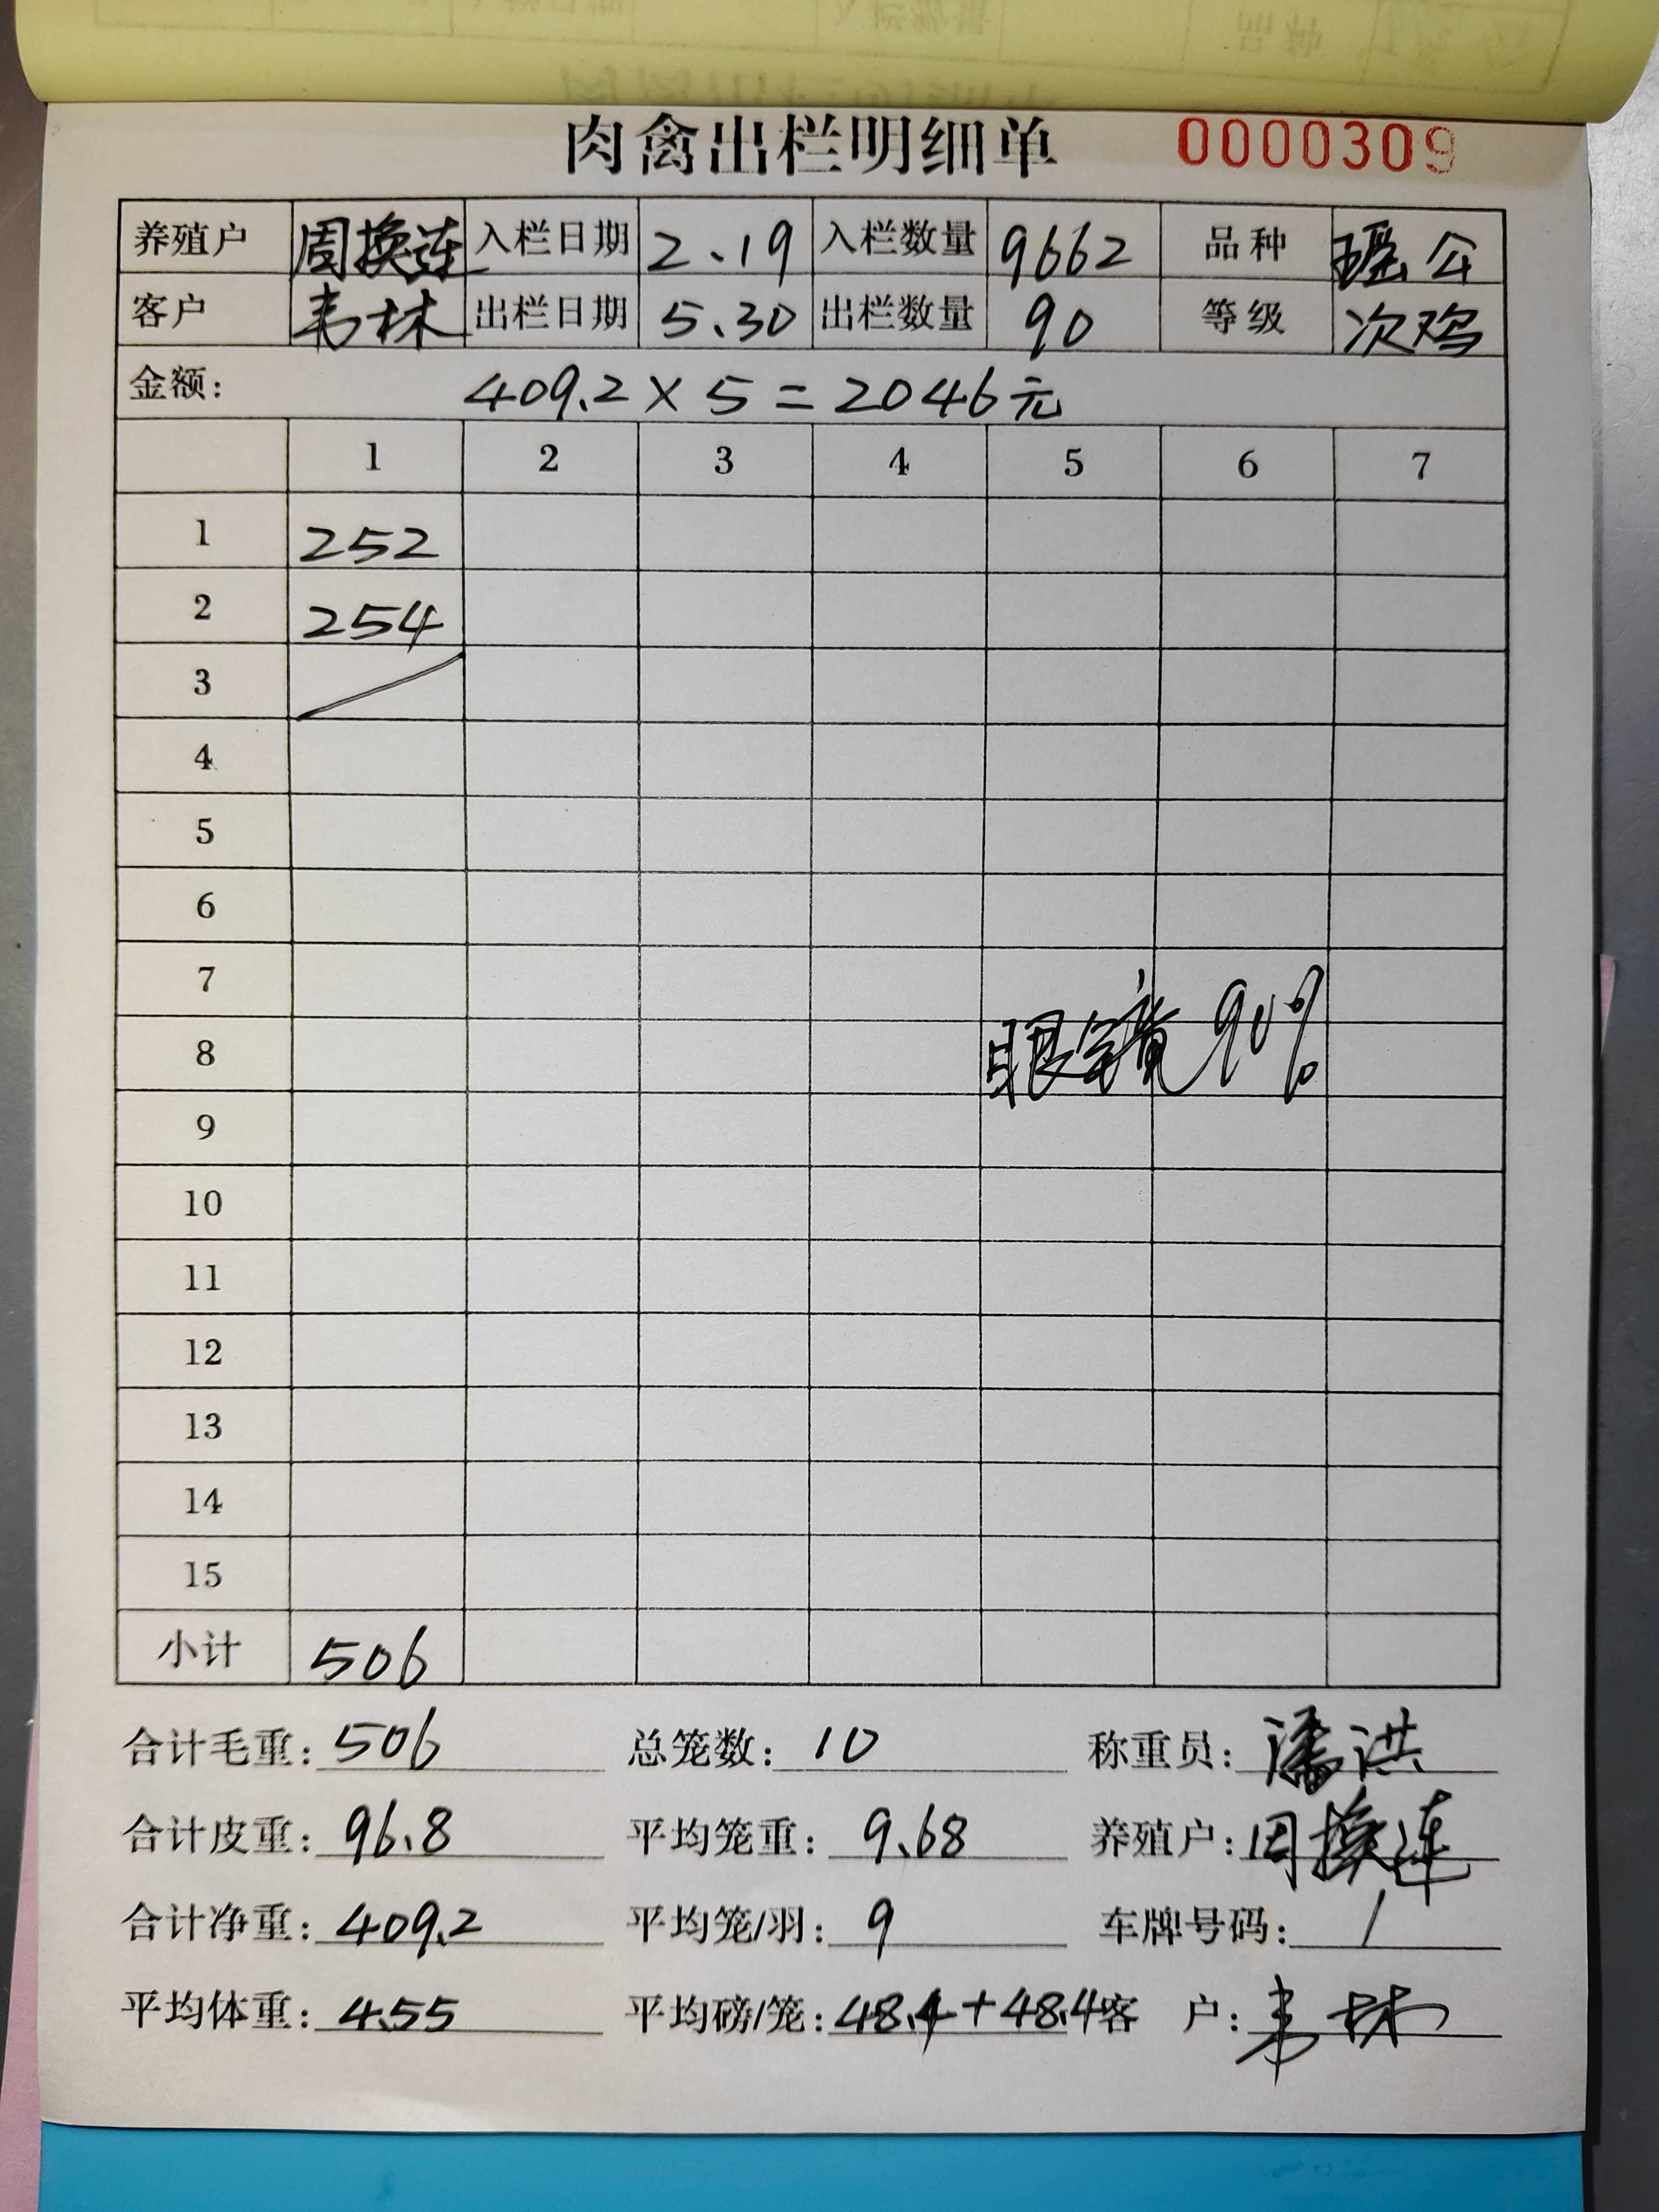 肉禽出栏明细单 0000309
养殖户 周换连 入栏日期 2.19 入栏数量 9662 品种 瑶公
客户 韦林 出栏日期 5.30 出栏数量 90 等级 次鸡
金额: 409.2×5=2046元
1 2 3 4 5 6 7
1 252
2 254
3
4
5
6
7
8 眼镜90%
9
10
11
12
13
14
15
小计 506
合计毛重: 506 总笼数: 10 称重员: 潘洪
合计皮重: 96.8 平均笼重: 9.68 养殖户: 周换连
合计净重: 409.2 平均笼/羽: 9 车牌号码: /
平均体重: 4.55 平均磅/笼: 48.4+48.4 客 户: 韦林